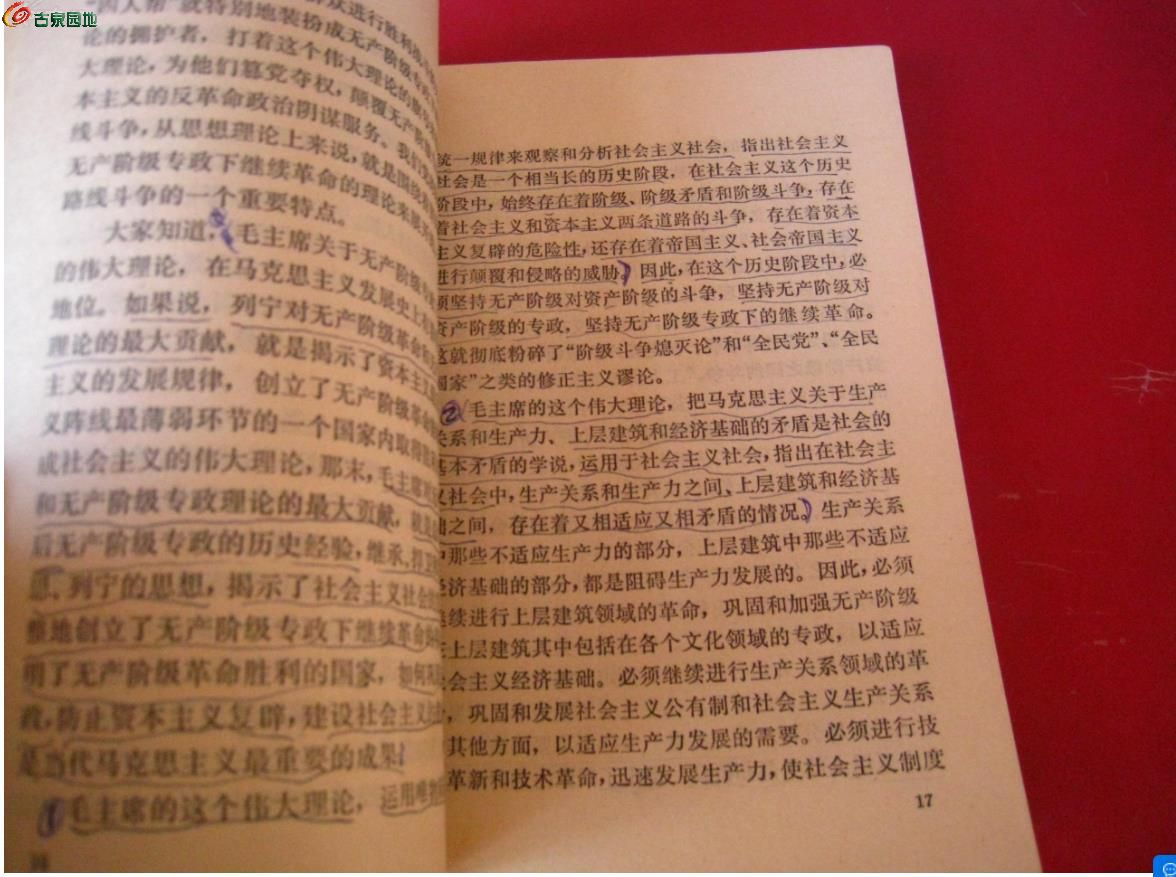 古泉园地
众进行胜利
四人帮”就特别地装扮成无产阶级专政
论的拥护者，打着这个伟大理论的
大理论，为他们篡党夺权，颠覆无产阶
本主义的反革命政治阴谋服务。我们
线斗争，从思想理论上来说，就是围绕
无产阶级专政下继续革命的理论来展
路线斗争的一个重要特点。
大家知道，毛主席关于无产阶级
的伟大理论，在马克思主义发展史上
地位。如果说，列宁对无产阶级革命和
理论的最大贡献，就是揭示了资本主义
主义的发展规律，创立了无产阶级
义阵线最薄弱环节的一个国家内取得
成社会主义的伟大理论，那末，毛主席
和无产阶级专政理论的最大贡献，就
后无产阶级专政的历史经验，继承、捍卫
思、列宁的思想，揭示了社会主义社会
整地创立了无产阶级专政下继续革命
明了无产阶级革命胜利的国家，如何
政，防止资本主义复辟，建设社会主义
是当代马克思主义最重要的成果
①毛主席的这个伟大理论，运用唯物
统一规律来观察和分析社会主义社会，指出社会主义
社会是一个相当长的历史阶段，在社会主义这个历史
阶段中，始终存在着阶级、阶级矛盾和阶级斗争，存在
着社会主义和资本主义两条道路的斗争，存在着资本
主义复辟的危险性，还存在着帝国主义、社会帝国主义
进行颠覆和侵略的威胁。因此，在这个历史阶段中，必
须坚持无产阶级对资产阶级的斗争，坚持无产阶级对
资产阶级的专政，坚持无产阶级专政下的继续革命。
这就彻底粉碎了“阶级斗争熄灭论”和“全民党”、“全民
国家”之类的修正主义谬论。
②毛主席的这个伟大理论，把马克思主义关于生产
关系和生产力、上层建筑和经济基础的矛盾是社会的
基本矛盾的学说，运用于社会主义社会，指出在社会主
义社会中，生产关系和生产力之间、上层建筑和经济基
础之间，存在着又相适应又相矛盾的情况。生产关系
中那些不适应生产力的部分，上层建筑中那些不适应
经济基础的部分，都是阻碍生产力发展的。因此，必须
继续进行上层建筑领域的革命，巩固和加强无产阶级
在上层建筑其中包括在各个文化领域的专政，以适应
社会主义经济基础。必须继续进行生产关系领域的革
，巩固和发展社会主义公有制和社会主义生产关系
其他方面，以适应生产力发展的需要。必须进行技
革新和技术革命，迅速发展生产力，使社会主义制度
17